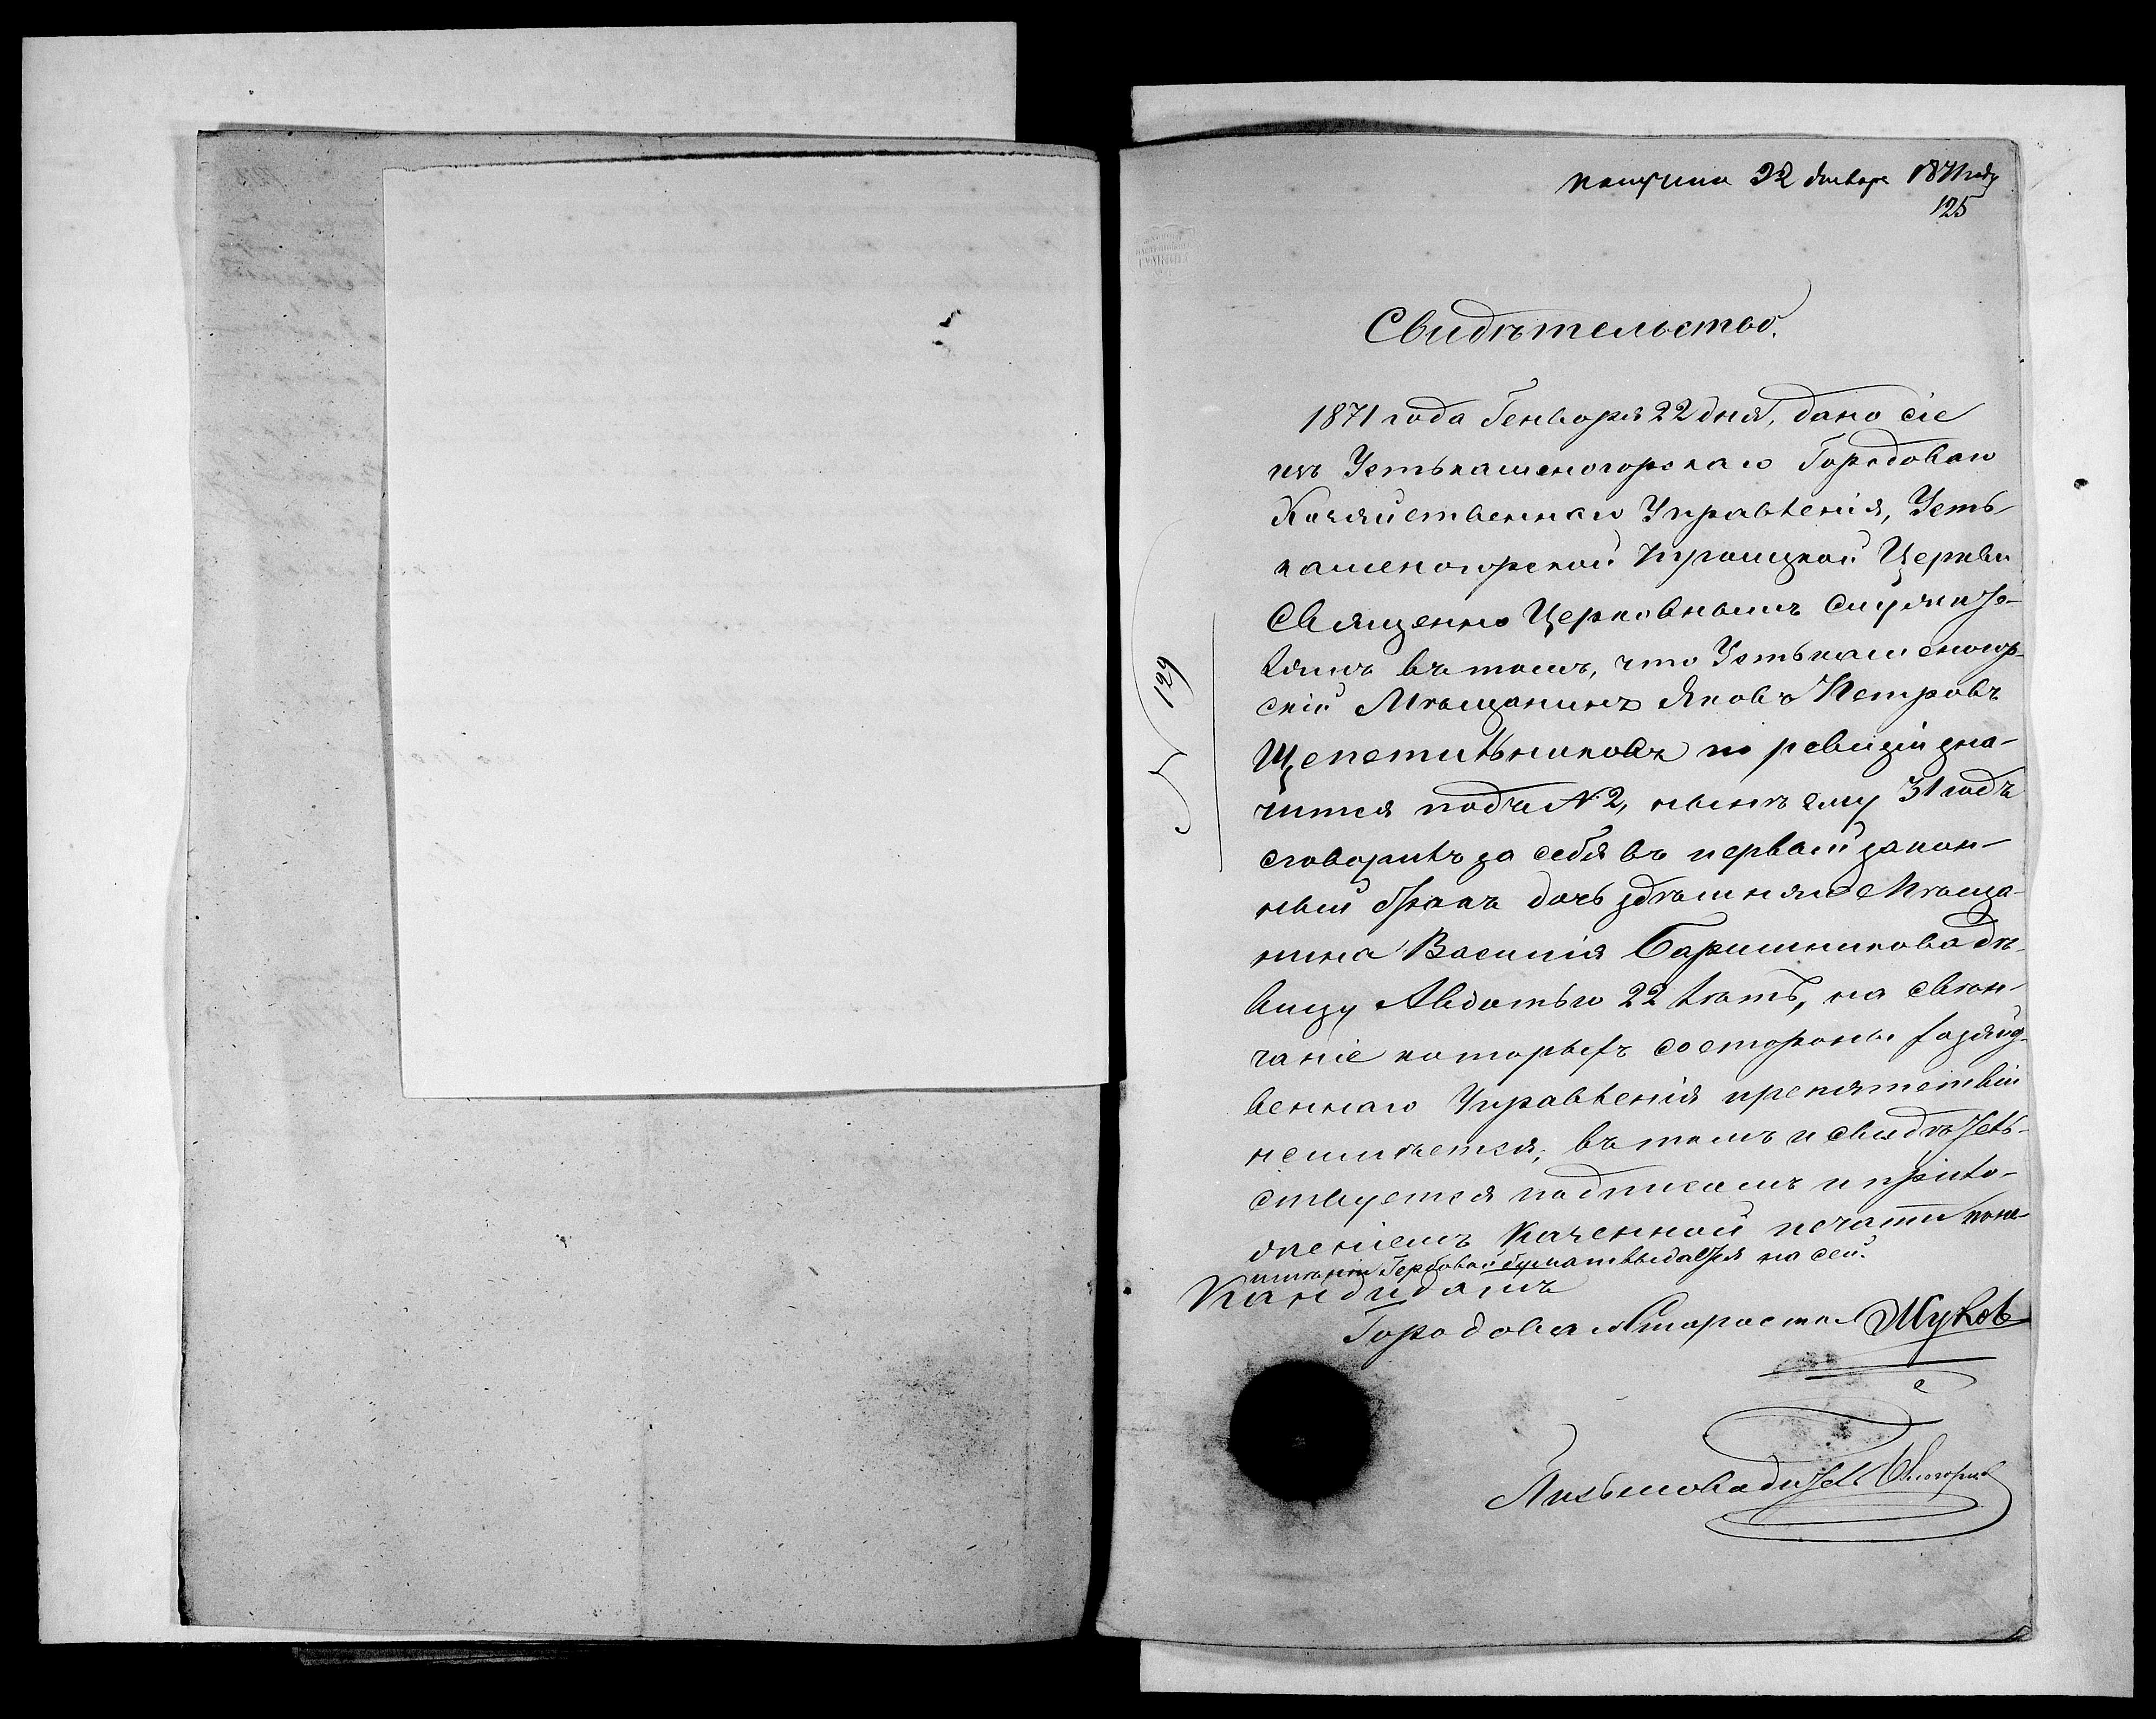 получина 22 Января 1871 году
125
Свидѣтельство.
1871 года Генворя 22 дня, дано сіе
изъ Устькаменогорскаго Городоваго
Хозяйственнаго Управленія, Усть-
каменогорской Троицкой Церкви
Священно Церковнымъ Служите-
лямъ въ томъ, что Устькаменогор-
скій Мѣщанинъ Яковъ Петровъ
Щепетильниковъ по ревизіи зна-
чится подъ № 2, нынѣ ему 31 годъ
сговорилъ за себя въ первый закон-
ный бракъ дочь здѣшняго Мѣща-
нина Василія Барышникова дѣ-
вицу Авдотью 22 лѣтъ, на свѣн-
чаніе которыхъ состороны Хозяйст-
веннаго Управленія препятствій
неимѣется, въ томъ и свидѣтель-
ствуется подписомъ и прило-
женіемъ Казенной печати поне-
имѣнію Гербовой бумаги выдается на сей.
№ 129
Кандидатъ
Городоваго Старосты Жуковъ
Письмоводитель